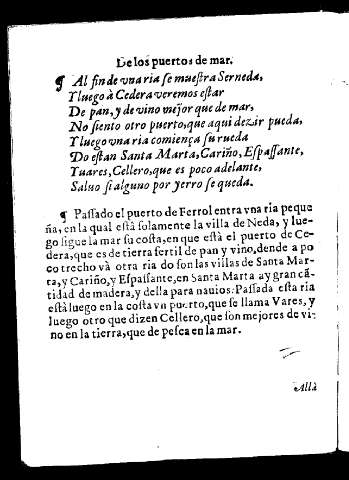 De los puertos de mar.
¶ Al fin de vna ria se muestra Serneda,
Y luego à Cedera veremos estar
De pan, y de vino mejor que de mar,
No siento otro puerto, que aqui dezir pueda,
Y luego vna ria comiença su rueda
Do estan Santa Marta, Cariño, Espassante,
Yuares, Cellero, que es poco adelante,
Saluo si alguno por yerro se queda.
¶ Passado el puerto de Ferrol entra vna ria peque
ña, en la qual està solamente la villa de Neda, y lue-
go sigue la mar su costa, en que està el puerto de Ce-
dera, que es de tierra fertil de pan y vino, dende a po
co trecho và otra ria do son las villas de Santa Mar-
ta, y Cariño, y Espassante, en Santa Marta ay gran cã-
tidad de madera, y della para nauios: Passada esta ria
està luego en la costa vn puerto, que se llama Vares, y
luego otro que dizen Cellero, que son mejores de vi-
no en la tierra, que de pesca en la mar.
Allà